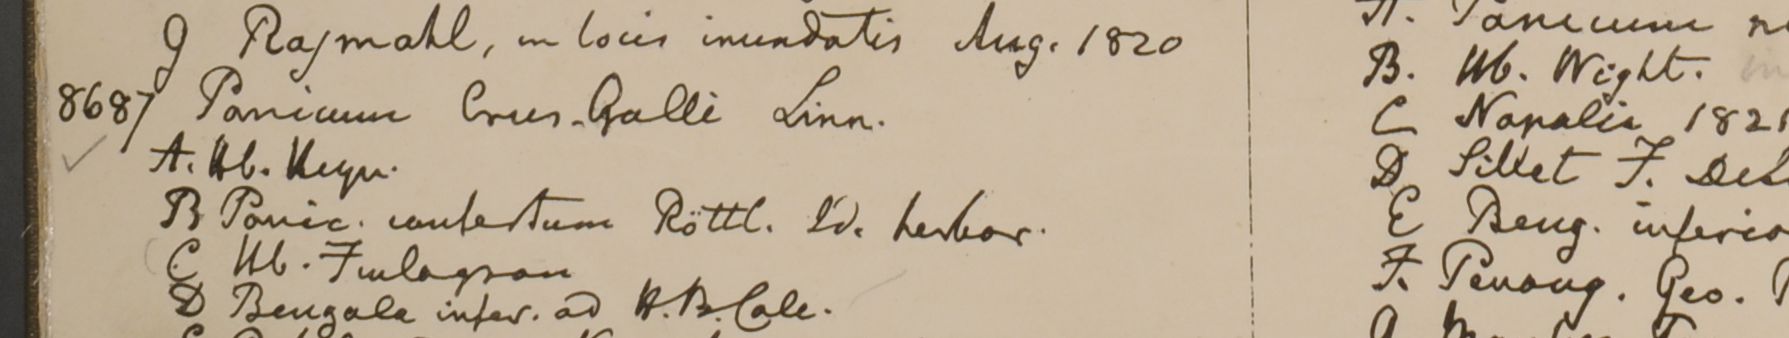 g Rajmahl, in locis inundatis Aug. 1820
8687 Panicum Crus-Galli Linn.
A. Hb. Heyn.
B Panic. confertum Röttl. Id. herbar.
C Hb. Finlayson
D Bengala infer. ad H.B. Calc.
Panicum
B. Hb. Wight.
C Napalia 1821
D Sillet F. DeS
E Beng. inferio
F. Penang. Geo.